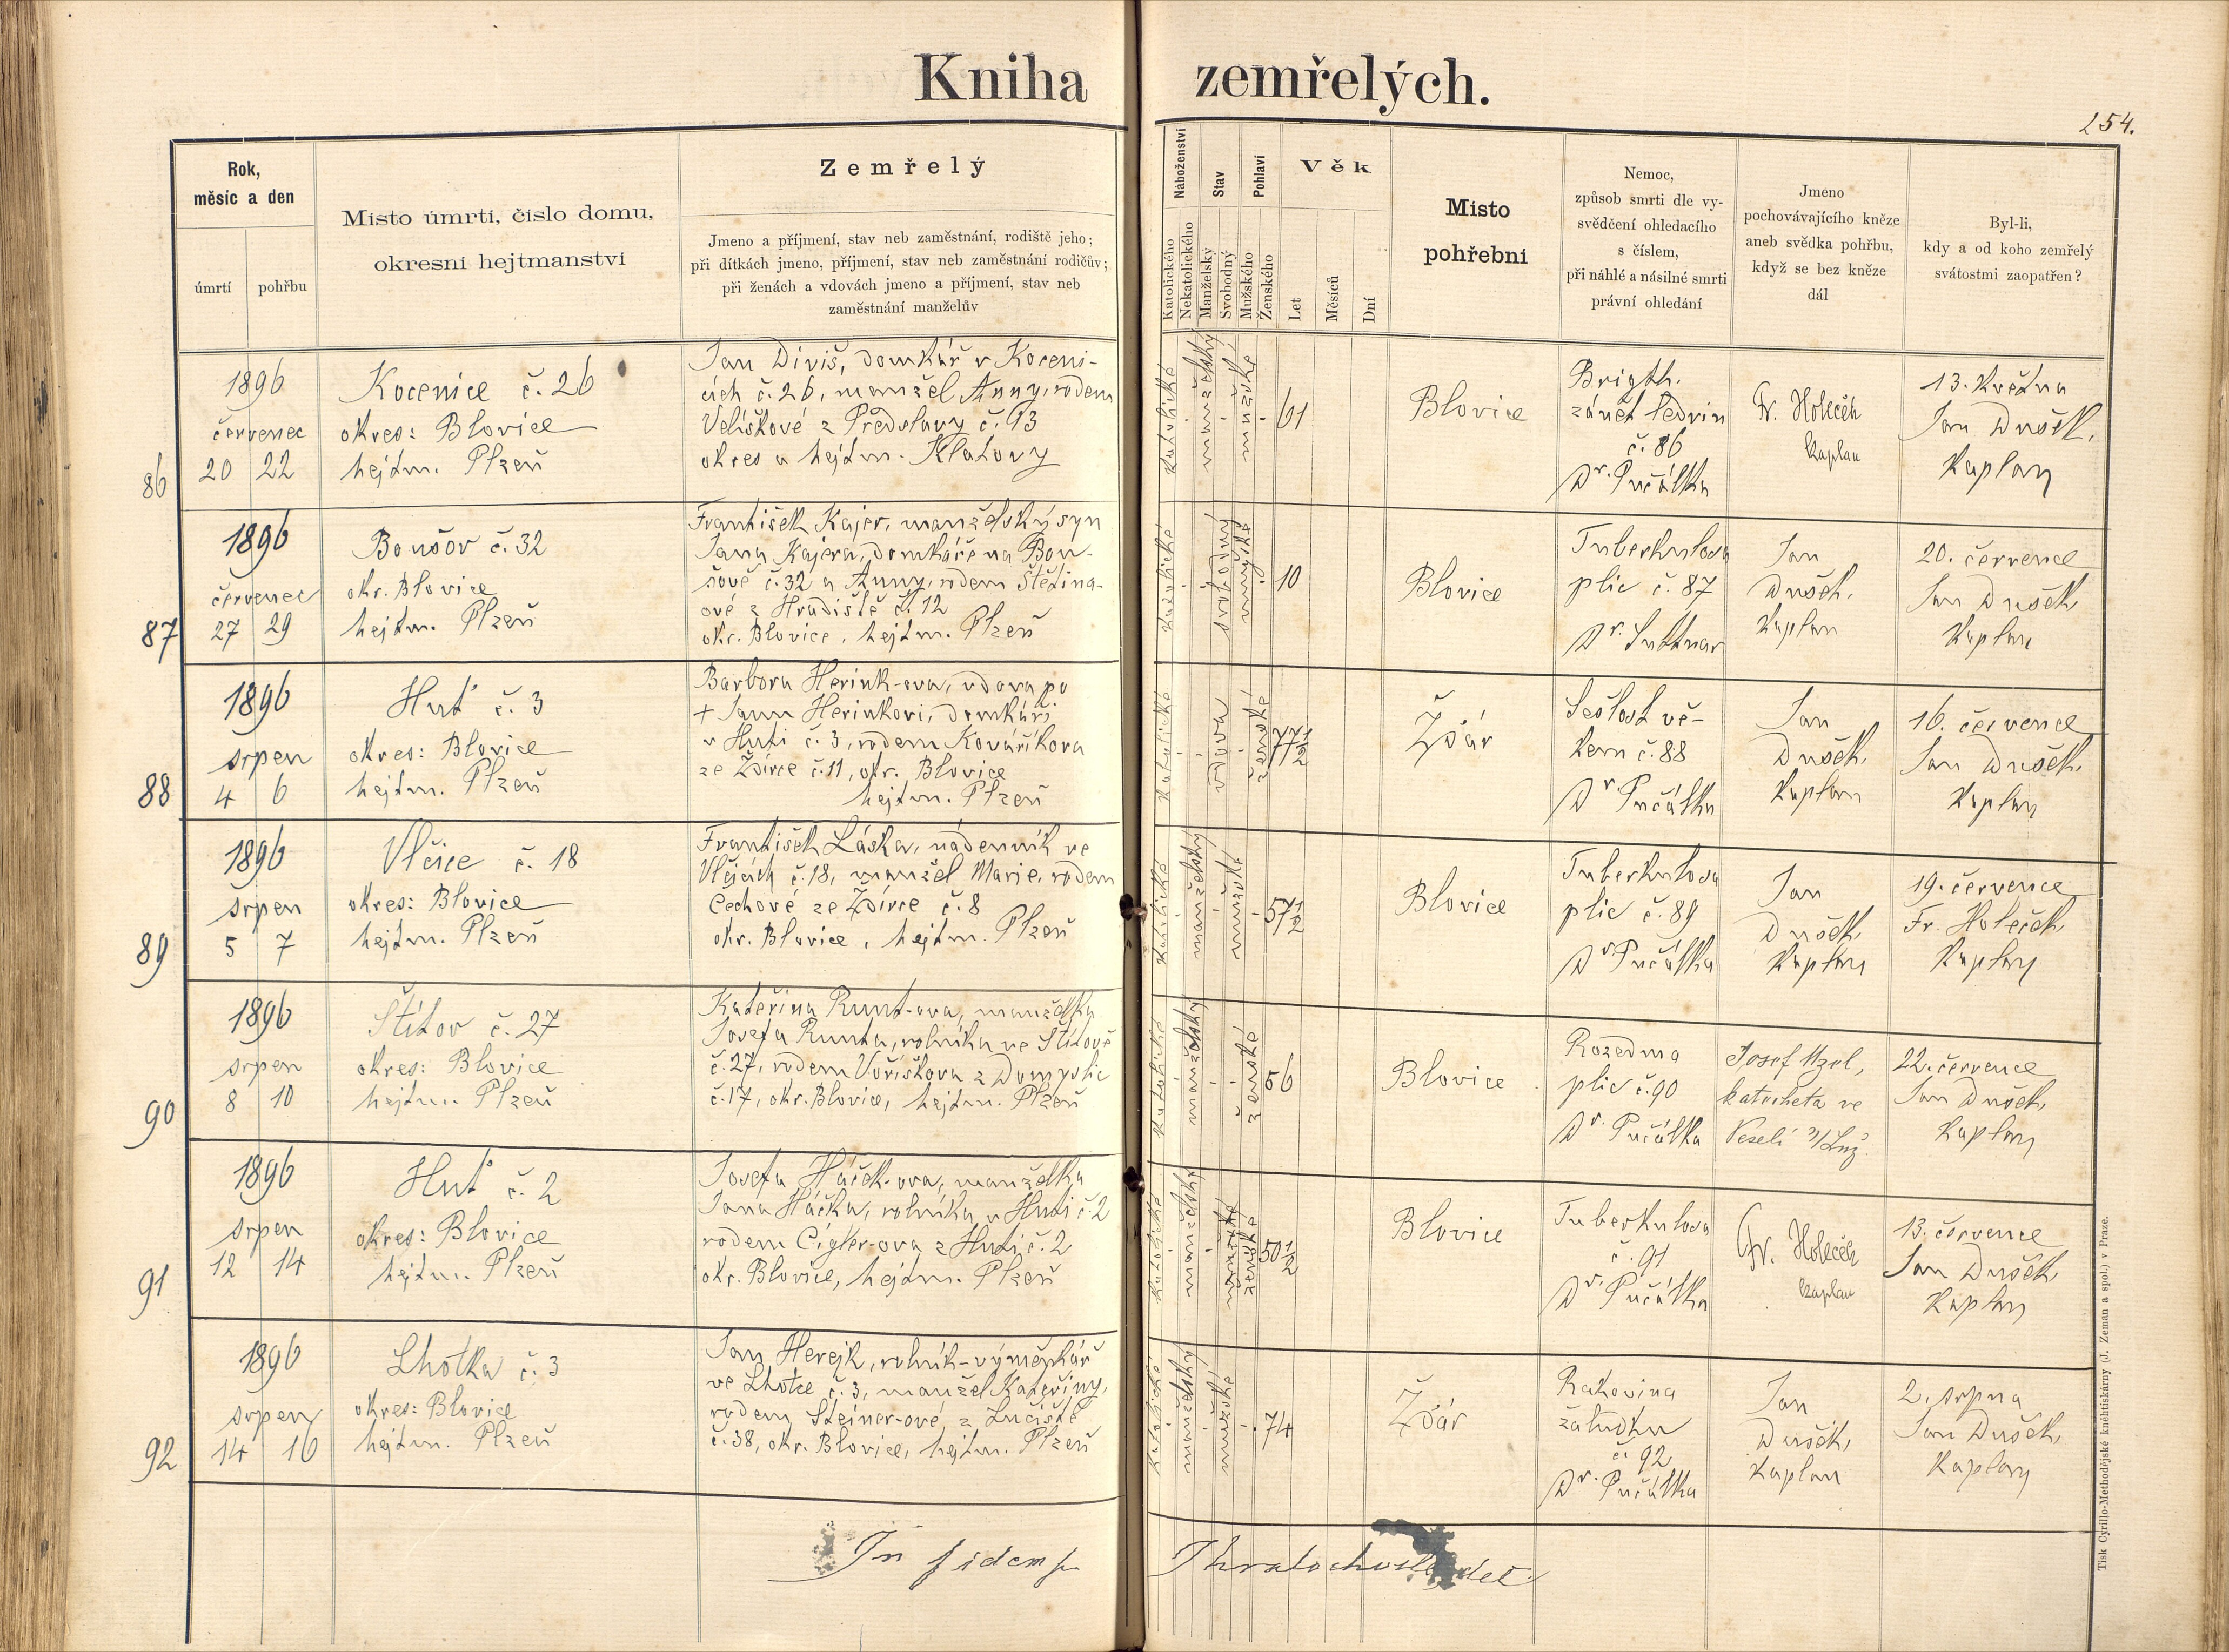 Kniha zemřelých.
254.
Rok,
měsíc a den
úmrtí
pohřbu
Místo úmrtí, číslo domu,
okresní hejtmanství
Zemřelý
Jmeno a příjmení, stav neb zaměstnání, rodiště jeho;
při dítkách jmeno, příjmení, stav neb zaměstnání rodičův;
při ženách a vdovách jmeno a příjmení, stav neb
zaměstnání manželův
Náboženství
Katolického
Nekatolického
Stav
Manželský
Svobodný
Pohlaví
Mužského
Ženského
Věk
Let
Měsíců
Dní
Místo
pohřební
Nemoc,
způsob smrti dle vy-
svědčení ohledacího
s číslem,
při náhlé a násilné smrti
právní ohledání
Jmeno
pochovávajícího kněze
aneb svědka pohřbu,
když se bez kněze
dál
Byl-li,
kdy a od koho zemřelý
svátostmi zaopatřen?
86
1896
červenec
20 22
Kocenice č. 26
okres: Blovice
hejtm. Plzeň
Jan Diviš, domkář v Koceni-
cích č. 26, manžel Anny, rodem
Velíškové z Předslavy č. 13
okres a hejtm. Klatovy
katolické
manželský
mužské
61
Blovice
Brigth.
zánět ledvin
č. 86
Dr. Pučálka
Fr. Holeček
kaplan
13. května
Jan Dušek,
kaplan
87
1896
červenec
27 29
Boušov č. 32
okr. Blovice
hejtm. Plzeň
František Kajer, manželský syn
Jana Kajera, domkáře na Bou-
šově č. 32 a Anny, rodem Štětina-
ové z Hradiště č. 12
okr. Blovice, hejtm. Plzeň
katolické
svobodný
mužské
10
Blovice
Tuberkulosa
plic č. 87
Dr.
Jan
Dušek,
kaplan
20. července
Jan Dušek,
kaplan
88
1896
srpen
4 6
Huť č. 3
okres: Blovice
hejtm. Plzeň
Barbora Herink-ova, vdova po
+ Janu Herinkovi, domkáři
v Huti č. 3, rodem Kováříkova
ze Ždírce č. 11, okr. Blovice
hejtm. Plzeň
katolické
vdova
ženské
77 1/2
Žďár
Sešlost vě-
kem č. 88
Dr. Pučálka
Jan
Dušek,
kaplan
16. července
Jan Dušek,
kaplan
89
1896
srpen
5 7
Vlčice č. 18
okres: Blovice
hejtm. Plzeň
František Láska, nádenník ve
Vlčicích č. 18, manžel Marie, rodem
Čechové ze Ždírce č. 8
okr. Blovice, hejtm. Plzeň
katolické
manželský
mužské
57 1/2
Blovice
Tuberkulosa
plic č. 89
Dr. Pučálka
Jan
Dušek,
kaplan
19. července
Fr. Holeček,
kaplan
90
1896
srpen
8 10
Štítov č. 27
okres: Blovice
hejtm. Plzeň
Kateřina Runt-ova, manželka
Josefa Runta, rolníka ve Štítově
č. 27, rodem Voříškova z Domyslic
č. 17, okr. Blovice, hejtm. Plzeň
katolické
manželský
ženské
56
Blovice
Rozedma
plic č. 90
Dr. Pučálka
Josef Uzel,
katecheta ve
Veselí n/Luž.
22. července
Jan Dušek,
kaplan
91
1896
srpen
12 14
Huť č. 2
okres: Blovice
hejtm. Plzeň
Josefa Háček-ova, manželka
Jana Háčka, rolníka v Huti č. 2
rodem Cígler-ova z Huti č. 2
okr. Blovice, hejtm. Plzeň
katolické
manželský
ženské
50 1/2
Blovice
Tuberkulosa
č. 91
Dr. Pučálka
Fr. Holeček
kaplan
13. července
Jan Dušek,
kaplan
92
1896
srpen
14 16
Lhotka č. 3
okres: Blovice
hejtm. Plzeň
Jan Herejk, rolník-výměnkář
ve Lhotce č. 3, manžel Kateřiny,
rodem Steiner-ové, z Lučiště
č. 38, okr. Blovice, hejtm. Plzeň
katolické
manželský
mužské
74
Žďár
Rakovina
žaludku
č. 92
Dr. Pučálka
Jan
Dušek,
kaplan
2. srpna
Jan Dušek,
kaplan
In fidem
Tisk Cyrillo-Methodějské kněhtiskárny (J. Zeman a spol.) v Praze.